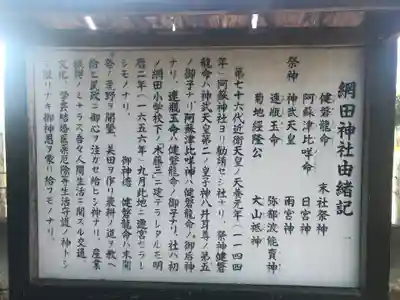 網田神社由緒記
祭神
健磐龍命
阿蘇津比咩命
神武天皇
速瓶玉命
菊地経隆公
末社祭神
日宮神
雨宮神
弥都波能賣神
大山祇神
第七十六代近衛天皇ノ天養元年(一一四四
年)阿蘇神社ヨリ勧請セシ社ナリ。祭神健磐
龍命ハ神武天皇第二ノ皇子神八井耳尊ノ第五
ノ御子ナリ。阿蘇津比咩神ハ健磐龍命ノ御后神
ナリ。速瓶玉命ハ健磐龍命ノ御子ナリ。社ハ初
メ網田小学校下ノ水藤三ニ建テラレタルモ明
暦二年(一六五六年)九月此地ニ遷宮セラレ
シモノナリ。 御神徳 健磐龍命ハ未開
ノ原野ヲ開墾、美田ヲ作リ農耕ノ道ヲ教ヘ
給ヒ民政ニ御心ヲ注ガセ給ヒシ神ナリ。産業
文化、学芸結婚医薬厄除等生活守護ノ神トシ
限リナキ御神恩ヲ蒙リ給ヲモノナリ。